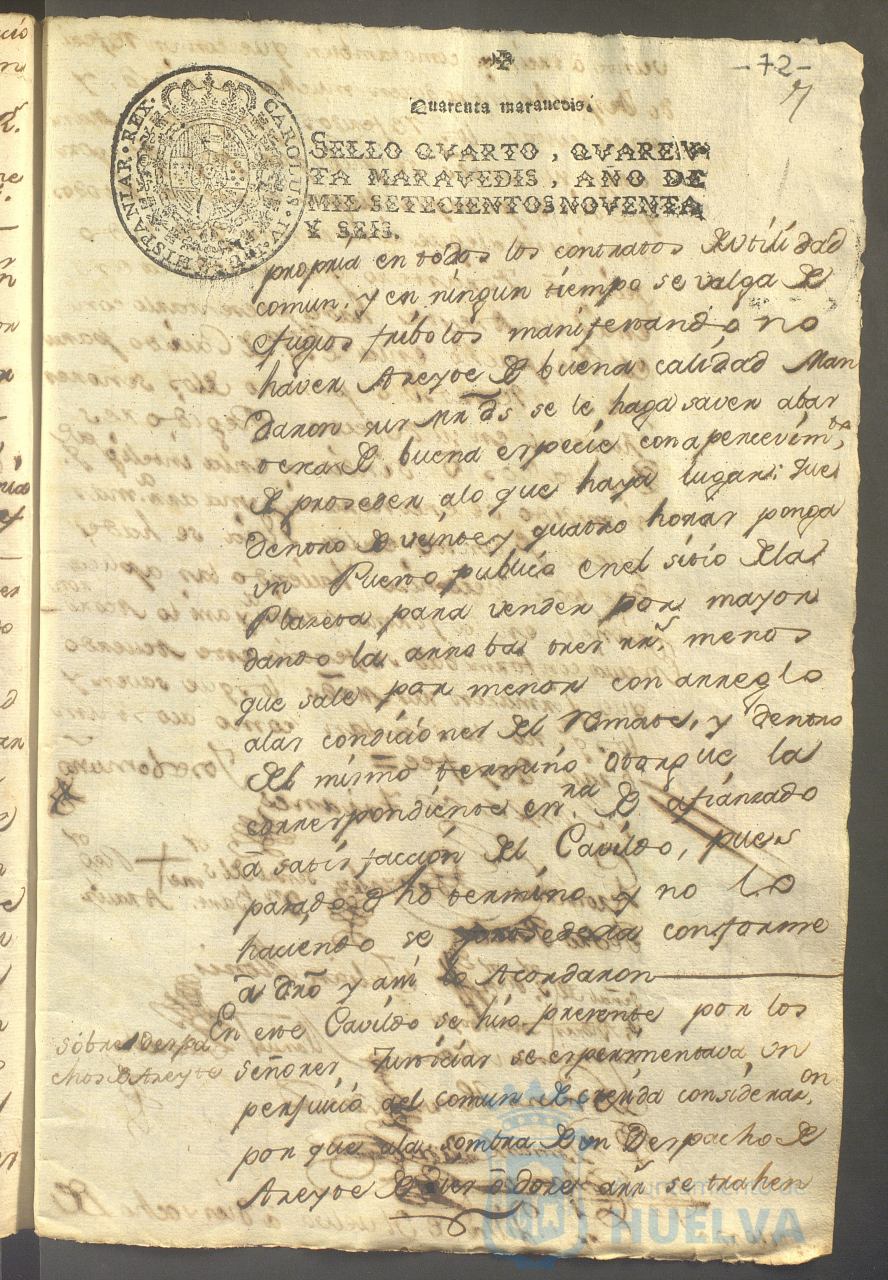 -72-
Quarenta maravedis.
SELLO QVARTO, QVAREN-
TA MARAVEDIS, AÑO DE
MIL SETECIENTOS NOVENTA
Y SEIS.
CAROLUS IV HISPANIAR REX
propria en todos los contratos de utilidad
comun; y en ningun tiempo se valga de
efugios fribolos manifestando no
haver Azeyte de buena calidad Man
daron sus mrds se le haga saver abas
tezca de buena especie con apercevimto
de proseder alo que haya lugar: que
dentro de veinte y quatro horas ponga
un Puesto publico en el sitio de la
Plazeta para vender por mayor
dando la arroba tres rrs. menos
que sale por menor con arreglo
alas condiciones del Remate, y dentro
del mismo termino otorgue la
correspondiente esra. de afianzado
â satisfaccion del Cavildo, pues
pasado dho termino y no lo
haciendo se prosedera conforme
â dro y assi lo Acordaron
sobre despa
chos de Azeyte
En este Cavildo se hizo presente por los
señores Justicias se experimentava un
perjuicio del comun de crecida considerazon,
por que ala sombra de un Despacho de
Azeyte de dies ô doze arrs se trahen
HUELVA